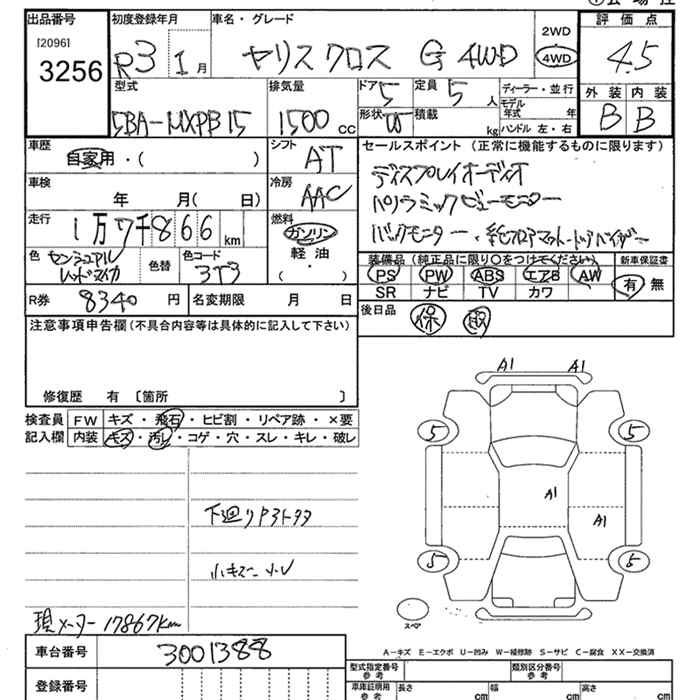 出品番号 初度登録年月 車名・グレード 2WD 評価点
[2096]
3256 R3 1月 ヤリスクロス G 4WD 4WD 4.5
型式 排気量 ドア 5 定員 5 人 ディーラー・並行 外装 内装
5BA-MXPB15 1500cc 形状 W 積載 kg モデル年式 年 B B
ハンドル 左・右
車歴 自家用・( ) シフト AT セールスポイント(正常に機能するものに限ります)
車検 年 月( 日) 冷房 AAC ディスプレイオーディオ
パノラミックビューモニター
走行 1万7千866km 燃料 ガソリン バックモニター・純フロアマット・ドアバイザー
軽油・( )
色 センシュアルレッドマイカ 色替 色コード 3T3 装備品(純正品に限り○をつけてください) 新車保証書
PS PW ABS エアB AW 有 無
SR ナビ TV カワ
R券 8340円 名変期限 月 日 後日品 保 取
注意事項申告欄(不具合内容等は具体的に記入して下さい)
修復歴 有 〔箇所 〕
検査員 FW キズ・飛石・ヒビ割・リペア跡・×要
記入欄 内装 キズ・汚レ・コゲ・穴・スレ・キレ・破レ
A1 A1
5 5
A1
A1
5 5
スペア
下廻り
小キズ
現メーター 17867km
A-キズ E-エクボ U-凹み W-補修跡 S-サビ C-腐食 XX-交換済
車台番号 3001388
型式指定番号 参考 類別区分番号 参考
登録番号 車庫証明用 参考 長さ cm 幅 cm 高さ cm